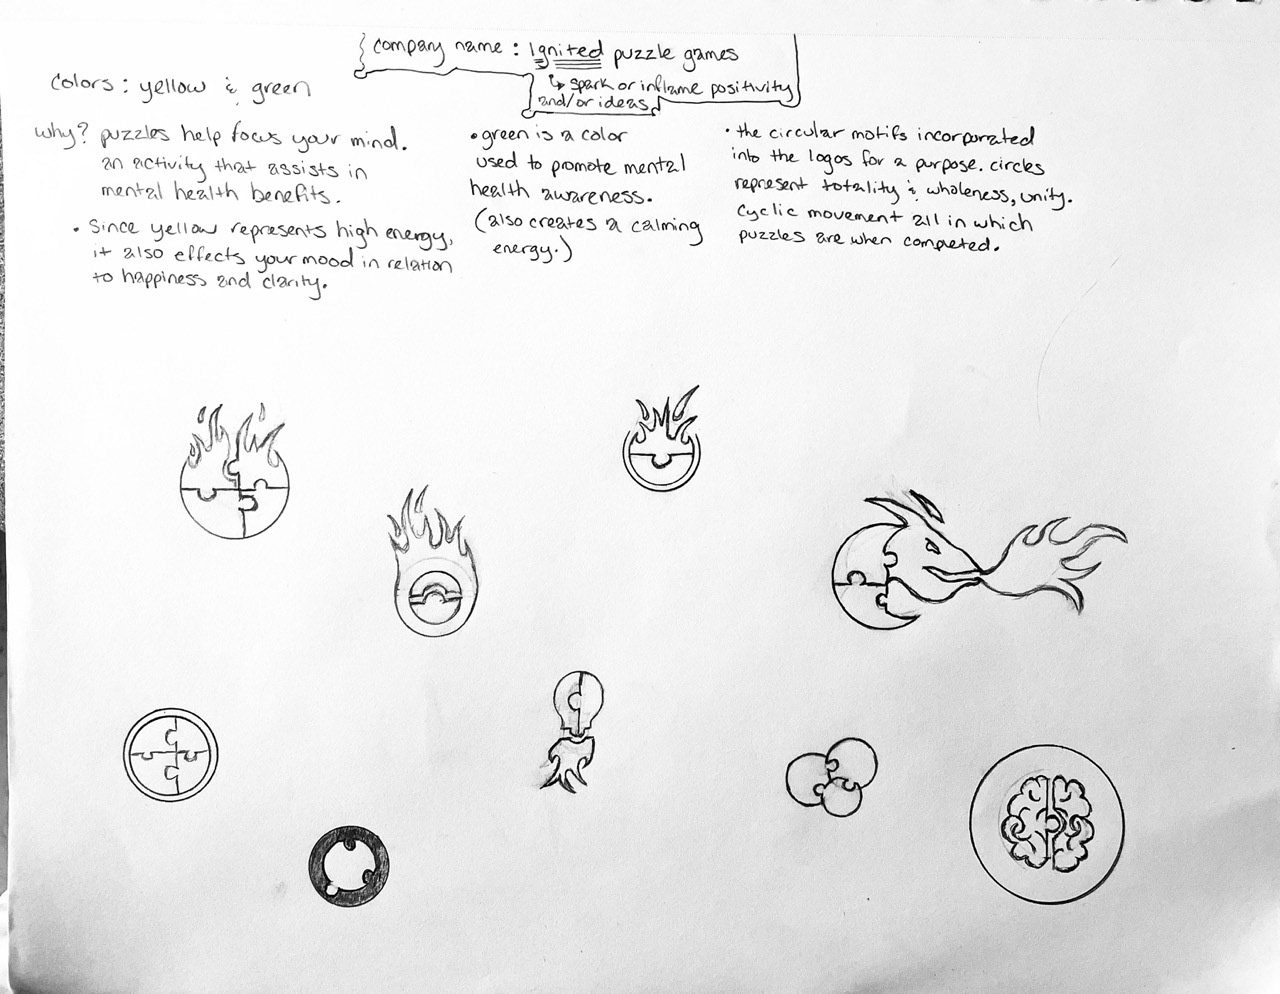 company name : Ignited puzzle games
↳ spark or inflame positivity
and/or ideas
colors : yellow & green
why? puzzles help focus your mind.
an activity that assists in
mental health benefits.
• Since yellow represents high energy,
it also effects your mood in relation
to happiness and clarity.
• green is a color
used to promote mental
health awareness.
(also creates a calming
energy.)
• the circular motifs incorporated
into the logos for a purpose. circles
represent totality & wholeness, unity.
Cyclic movement all in which
puzzles are when completed.